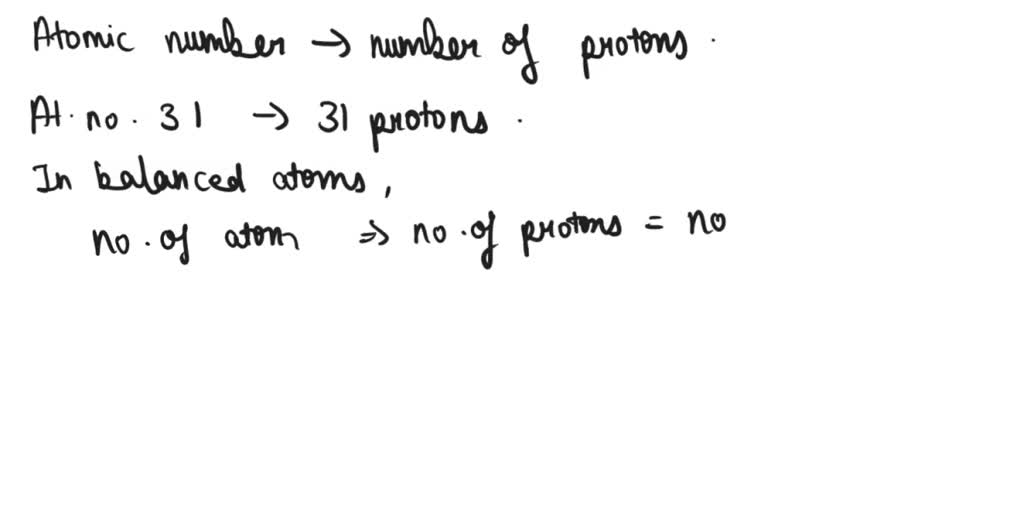 Atomic number → number of protons.
At. no. 31 → 31 protons.
In balanced atoms,
no. of atom ⇒ no. of protons = no